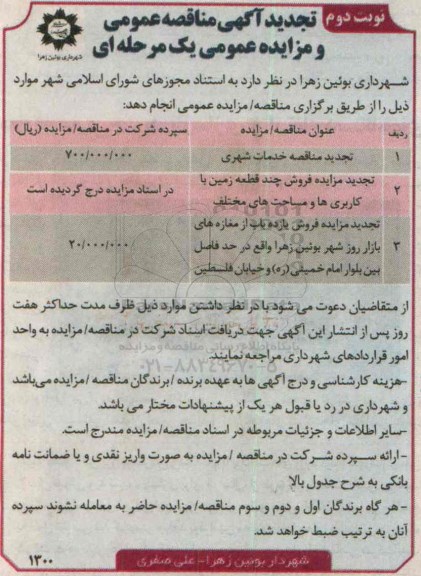 نوبت دوم
تجدید آگهی مناقصه عمومی
و مزایده عمومی یک مرحله ای
شهرداری بوئین زهرا
شهرداری بوئین زهرا در نظر دارد به استناد مجوزهای شورای اسلامی شهر موارد
ذیل را از طریق برگزاری مناقصه/ مزایده عمومی انجام دهد:
ردیف عنوان مناقصه/ مزایده سپرده شرکت در مناقصه/ مزایده (ریال)
۱ تجدید مناقصه خدمات شهری ۷۰۰/۰۰۰/۰۰۰
۲ تجدید مزایده فروش چند قطعه زمین با
کاربری ها و مساحت های مختلف در اسناد مزایده درج گردیده است
تجدید مزایده فروش یازده باب از مغازه های
۳ بازار روز شهر بوئین زهرا واقع در حد فاصل ۲۰/۰۰۰/۰۰۰
بین بلوار امام خمینی (ره) و خیابان فلسطین
از متقاضیان دعوت می شود با در نظر داشتن موارد ذیل ظرف مدت حداکثر هفت
روز پس از انتشار این آگهی جهت دریافت اسناد شرکت در مناقصه/ مزایده به واحد
امور قراردادهای شهرداری مراجعه نمایند.
-هزینه کارشناسی و درج آگهی ها به عهده برنده / برندگان مناقصه /مزایده می‌باشد
و شهرداری در رد یا قبول هر یک از پیشنهادات مختار می باشد.
-سایر اطلاعات و جزئیات مربوطه در اسناد مناقصه/ مزایده مندرج است.
-ارائه سپرده شرکت در مناقصه /مزایده به صورت واریز نقدی و یا ضمانت نامه
بانکی به شرح جدول بالا
- هر گاه برندگان اول و دوم و سوم مناقصه/ مزایده حاضر به معامله نشوند سپرده
آنان به ترتیب ضبط خواهد شد.
شهردار بوئین زهرا- علی صفری
۱۳۰۰
۰۲۱-۸۸۳۴۹۶۷۰-۵